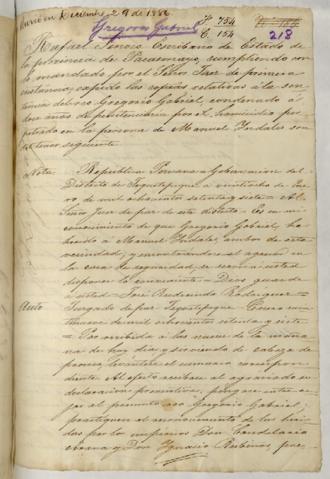 Murió en Diciembre 29 de 1882
Gregorio Gabriel
F. 754
C. 154
218
Rafael Tenorio Escribano de Estado de
la provincia de Pacasmayo cumpliendo con
lo mandado por el Señor Juez de primera
instancia, expido las copias relativas a la sen
tencia del reo Gregorio Gabriel, condenado á
años de penitenciaria por el homicidio per
petrado en la persona de Manuel Indalec son
del tenor siguiente
Nota
Republica Peruana Gobernacion del
Distrito de Jequetepeque a veintiocho de Ene
ro de mil ochocientos setenta y siete Al
Señor Juez de paz de este distrito Es en mi
conocimiento de que Gregorio Gabriel, ha
herido a Manuel Indalec, ambos de esta
vecindad, y encontrandose el agresor en
la casa de seguridad, se servirá usted
disponer lo conveniente Dios guarde
á usted José Rudecindo Rodriguez
Auto
Juzgado de paz Jequetepeque Enero vein
tinueve de mil ochocientos setenta y siete
Por recibida á las nueve de la maña
na de hoy dia y sirviendo de cabeza de
proceso levántese el sumario correspon
diente Al efecto recíbase al agraviado su
declaracion preventiva, pongase en
al presunto reo Gregorio Gabriel,
practíquese el reconocimiento de las heri
das por los empíricos Don Candelario
y Don Ignacio Rubiños, pre